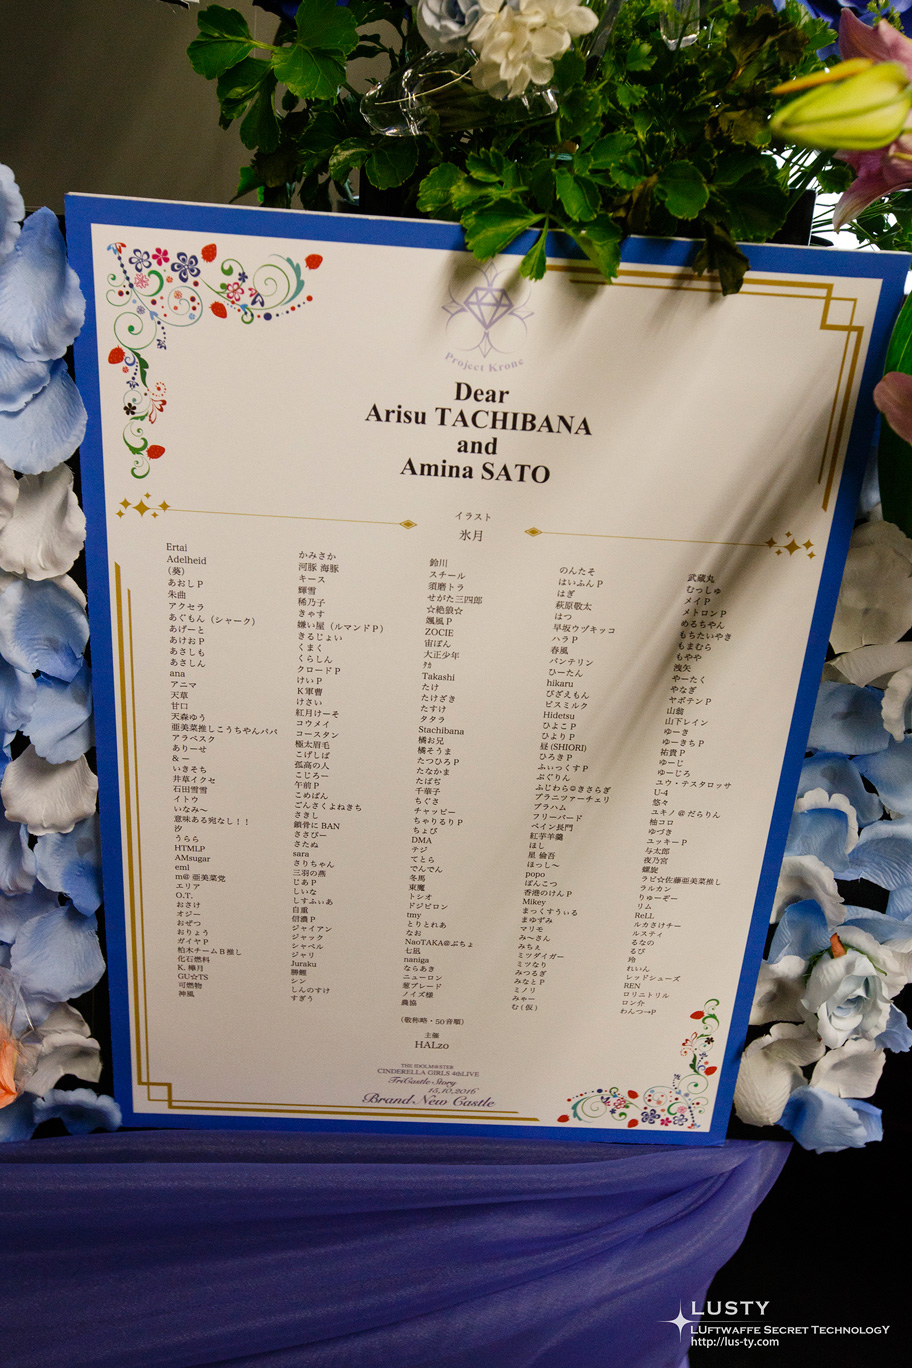 Project Krone
Dear
Arisu TACHIBANA
and
Amina SATO
イラスト
氷月
Ertai
Adelheid
(葵)
あおしP
朱曲
アクセラ
あぐもん（シャーク）
あげーと
あけおP
あさしも
あさしん
ana
アニマ
天草
甘口
天森ゆう
亜美菜推しこうちやんパパ
アラベスク
ありーせ
& ー
いきそち
井草イクセ
石田雪雪
イトウ
いなみ〜
意味ある宛なし！！
汐
うらら
HTMLP
AMsugar
eml
m@ 亜美菜党
エリア
O.T.
おさけ
オジー
おぜつ
おりょう
ガイヤP
柏木チームB推し
化石燃料
K. 皣月
GU☆TS
可燃物
神風
かみさか
河豚 海豚
キース
輝雪
稀乃子
きゃす
嫌い屋（ルマンドP）
きるじょい
くまく
くらしん
クロードP
けいP
K軍曹
けさい
紅月けーそ
コウメイ
コースタン
極太眉毛
こげしば
孤高の人
こじろー
午前P
こめぱん
ごんさくよねきち
さきし
鎖骨にBAN
ささぴー
さたぬ
sara
さりちゃん
三羽の燕
じあP
しいな
しすふぃあ
自重
信濃P
ジャイアン
ジャック
シャベル
ジャリ
Juraku
勝鯉
シン
しんのすけ
すぎう
鈴川
スチール
須磨トラ
せがた三四郎
☆絶狼☆
颯風P
ZOCIE
宙ぱん
大正少年
ﾀｶ
Takashi
たけ
たけざき
たすけ
タタラ
Stachibana
橘お兄
橘そうま
たつひろP
たなかま
たばぢ
千華子
ちぐさ
チャッピー
ちゃりるりP
ちょび
DMA
テジ
てとら
でんでん
冬馬
東魔
トシオ
ドジピロン
tmy
とりとれあ
なお
NaoTAKA@ぷちょ
七凪
naniga
ならあき
ニューロン
葱ブレード
ノイズ様
農協
のんたそ
はいふんP
はぎ
萩原敬太
はつ
早坂ウヅキッコ
ハラP
春風
バンテリン
ひーたん
hikaru
びざえもん
ビスミルク
Hidetsu
ひよこP
ひよりP
昼(SHIORI)
ひろきP
ふぃっくすP
ぶぐりん
ふじわら@きさらぎ
ブラニツァーチェリ
ブラハム
フリーバード
ペイン長門
紅芋羊羹
ほし
星 倫吾
ほっし〜
popo
ぽんこつ
香港のけんP
Mikey
まっくすうぃる
まゆずみ
マリモ
み〜さん
みちぇ
ミツダイガー
ミツなり
みつるぎ
みなとP
ミノリ
みゃー
む(仮)
武蔵丸
むっしゅ
メイP
メトロンP
めるちやん
もちたいやき
もまむら
もやや
洩矢
やーたく
やなぎ
ヤボテンP
山翁
山下レイン
ゆーき
ゆーきちP
祐貴P
ゆーじ
ゆーじろ
ユウ・テスタロッサ
U-4
悠々
ユキノ@だらりん
柚ココ
ゆづき
ユッキーP
与太郎
夜乃宮
螺旋
ラビ☆佐藤亜美菜推し
ラルカン
りゅーぞー
リム
ReLL
ルカさけナー
ルスティ
るなの
るび
玲
れいん
レッドシューズ
REN
ロリニトリル
ロン介
わんつ→P
（敬称略・50音順）
主催
HALzo
THE IDOLM@STER
CINDERELLA GIRLS 4thLIVE
TriCastle Story
15,10,2016
Brand New Castle
LUSTY
LUFTWAFFE SECRET TECHNOLOGY
http://lus-ty.com